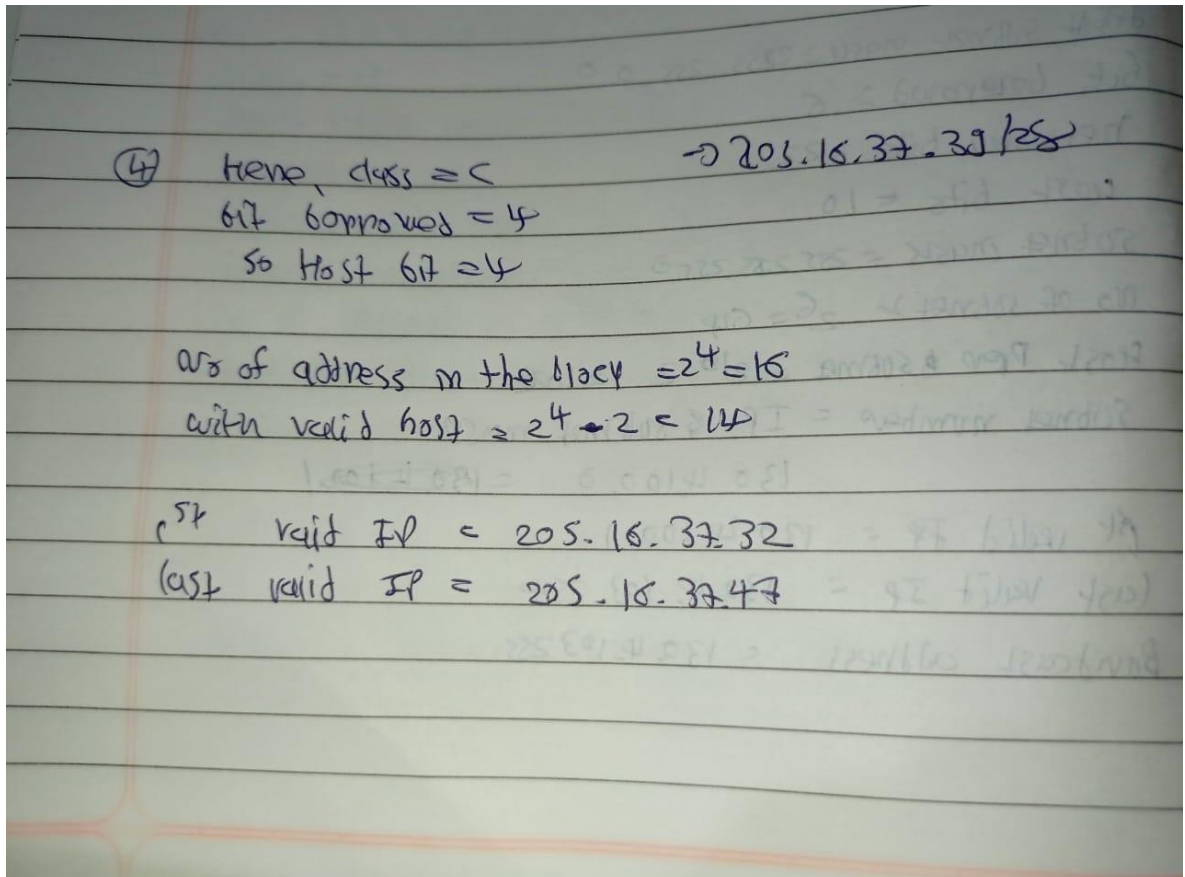 ④ Here, class = C → 205.16.37.39/28
bit borrowed = 4
so Host bit = 4
No of address in the block = 2⁴ = 16
with valid host = 2⁴ - 2 = 14
1st valid IP = 205.16.37.32
last valid IP = 205.16.37.47